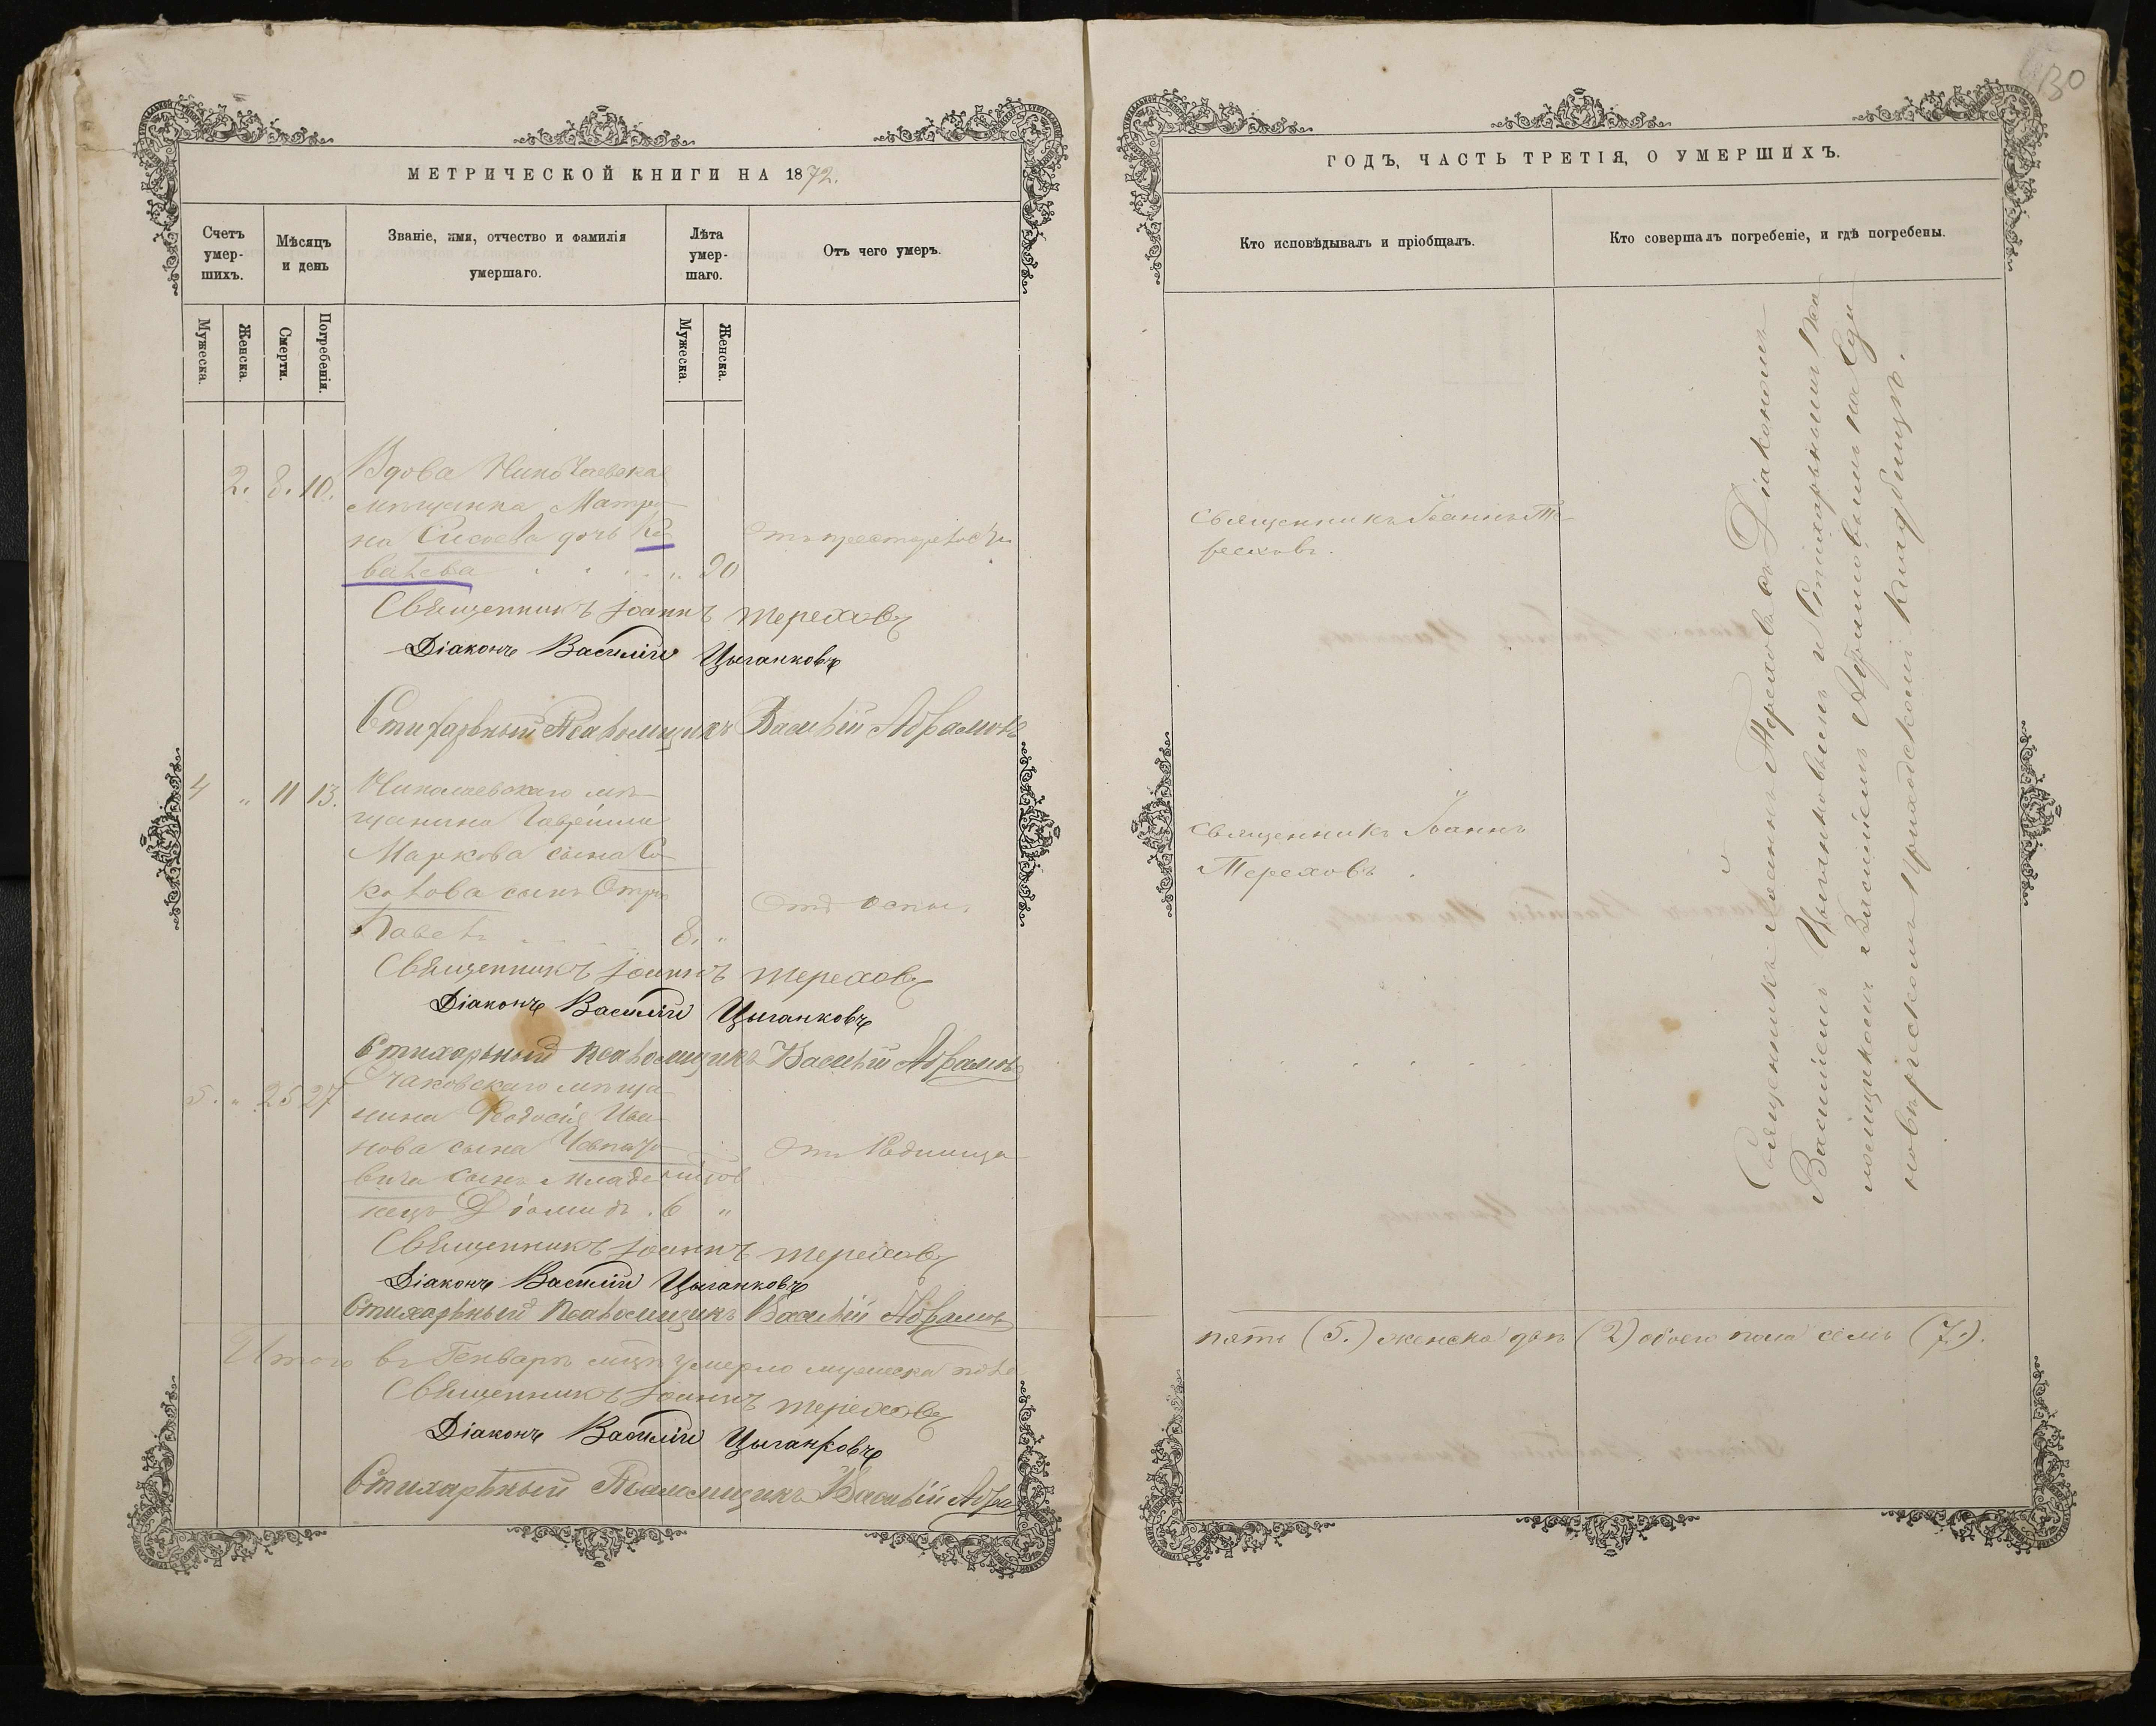 130
МЕТРИЧЕСКОЙ КНИГИ НА 1872.
Счетъ умер- шихъ.
Мѣсяцъ и день
Званіе, имя, отчество и фамилія умершаго.
Лѣта умер- шаго.
Отъ чего умеръ.
Мужеска.
Женска.
Смерти.
Погребенія.
Мужеска.
Женска.
2. 8. 10. Вдова Николаевская
мѣщанка Матро-
на Сисоева дочь Ко-
валева 90
Отъ престарелости
Священникъ Іоаннъ Тереховъ
Діаконъ Василій Цыганковъ
Стихарный Псаломщикъ Василій Абрамовъ
4 " 11 13. Николаевскаго мѣ-
щанина Гавріила
Маркова сына Со-
колова сынъ Отрокъ
Павелъ 8. "
Отъ оспы.
Священникъ Іоаннъ Тереховъ
Діаконъ Василій Цыганковъ
Стихарный Псаломщикъ Василій Абрамовъ
5. " 25 27 Очаковскаго мѣща-
нина Ѳеодосія Ива-
нова сына
вича сынъ младе-
нецъ Діомидъ . 6 "
Отъ
Священникъ Іоаннъ Тереховъ
Діаконъ Василій Цыганковъ
Стихарный Псаломщикъ Василій Абрамовъ
Итого въ Генварѣ мцѣ умерло мужеска пола
Священникъ Іоаннъ Тереховъ
Діаконъ Василій Цыганковъ
Стихарный Псаломщикъ Василій Абра
ГОДЪ, ЧАСТЬ ТРЕТІЯ, О УМЕРШИХЪ.
Кто исповѣдывалъ и пріобщалъ.
Кто совершалъ погребеніе, и гдѣ погребены.
Священникъ Іоаннъ Те-
реховъ.
Священникъ Іоаннъ
Тереховъ.
Священникъ Іоаннъ Тереховъ съ Діакономъ
Василіемъ Цыганковымъ и Стихарнымъ Пса-
ломщикомъ Василіемъ Абрамовымъ на Еди-
новѣрческомъ приходскомъ кладбищѣ.
пять (5.) женска двѣ (2) обоего пола семь (7.).